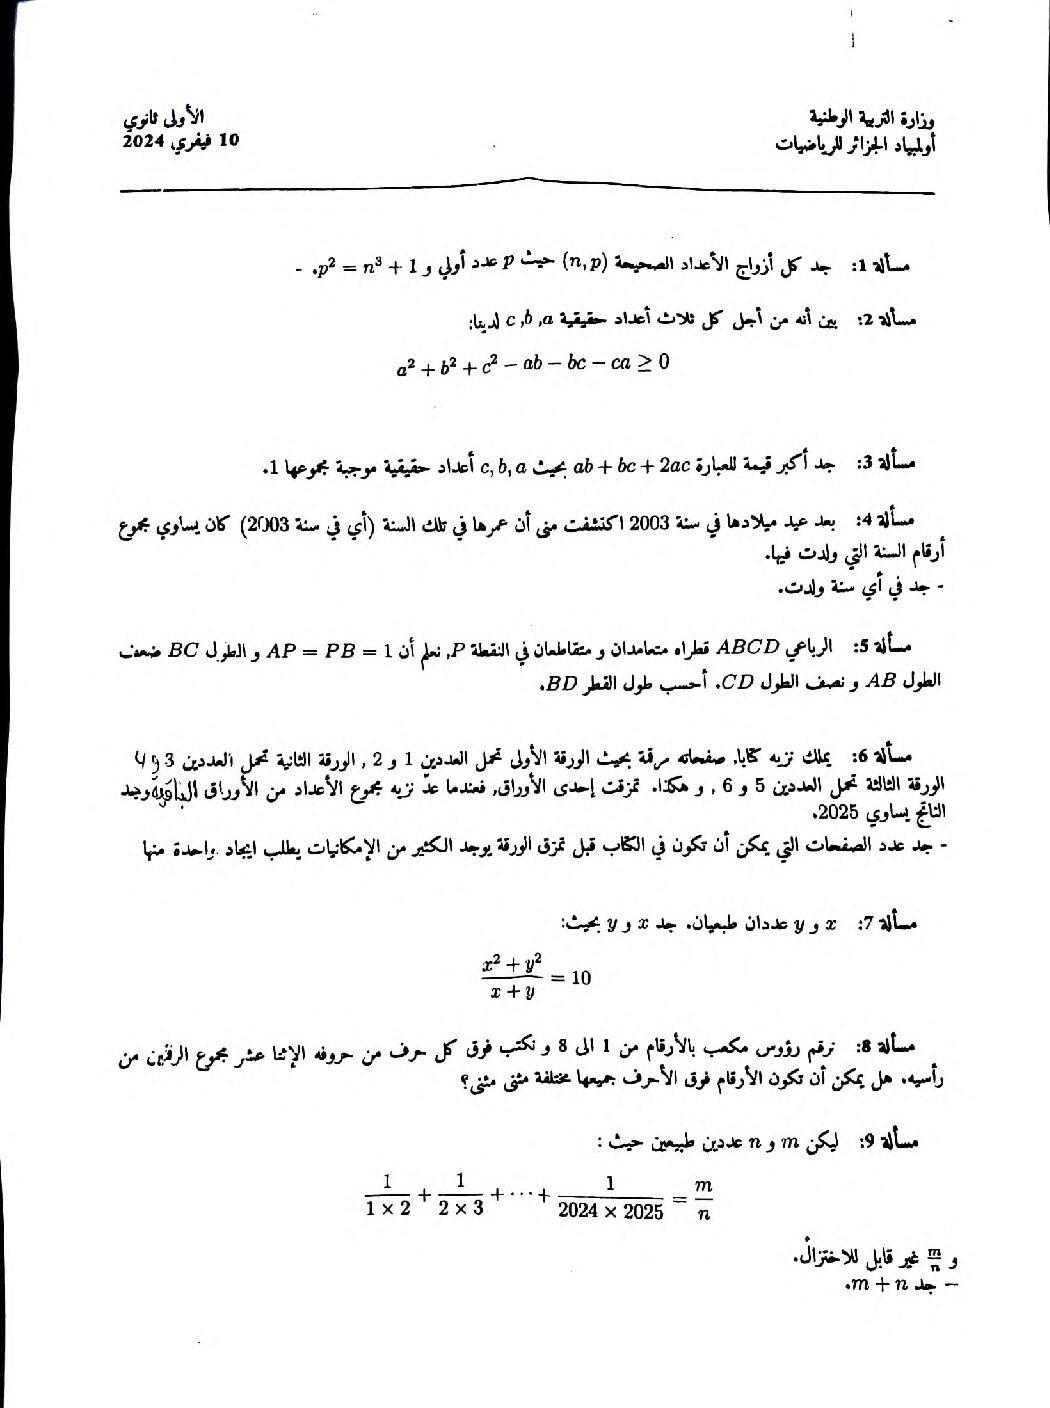 وزارة التربية الوطنية
الأولى ثانوي
أولمبياد الجزائر للرياضيات
10 فيفري 2024
مسألة 1: جد كل أزواج الأعداد الصحيحة (n, p) حيث p عدد أولي و p² = n³ + 1. -
مسألة 2: بين أنه من أجل كل ثلاث أعداد حقيقية a, b, c لدينا:
a² + b² + c² − ab − bc − ca ≥ 0
مسألة 3: جد أكبر قيمة للعبارة ab + bc + 2ac بحيث c, b, a أعداد حقيقية موجبة مجموعها 1.
مسألة 4: بعد عيد ميلادها في سنة 2003 اكتشفت منى أن عمرها في تلك السنة (أي في سنة 2003) كان يساوي مجموع
أرقام السنة التي ولدت فيها.
- جد في أي سنة ولدت.
مسألة 5: الرباعي ABCD قطراه متعامدان و متقاطعان في النقطة P, نعلم أن AP = PB = 1 و الطول BC ضعف
الطول AB و نصف الطول CD. أحسب طول القطر BD.
مسألة 6: يملك نزيه كتابا, صفحاته مرقمة بحيث الورقة الأولى تحمل العددين 1 و 2 , الورقة الثانية تحمل العددين 3 و 4
الورقة الثالثة تحمل العددين 5 و 6 , و هكذا. تمزقت إحدى الأوراق, فعندما عدّ نزيه مجموع الأعداد من الأوراق الباقية وجد
الناتج يساوي 2025.
- جد عدد الصفحات التي يمكن أن تكون في الكتاب قبل تمزق الورقة يوجد الكثير من الإمكانيات يطلب ايجاد واحدة منها
مسألة 7: x و y عددان طبيعيان. جد x و y بحيث:
(x² + y²)/(x + y) = 10
مسألة 8: نرقم رؤوس مكعب بالأرقام من 1 الى 8 و نكتب فوق كل حرف من حروفه الإثنا عشر مجموع الرقمين من
رأسيه. هل يمكن أن تكون الأرقام فوق الأحرف جميعها مختلفة مثنى مثنى؟
مسألة 9: ليكن m و n عددين طبيعيين حيث :
1/(1 × 2) + 1/(2 × 3) + ··· + 1/(2024 × 2025) = m/n
و m/n غير قابل للاختزال.
– جد m + n.